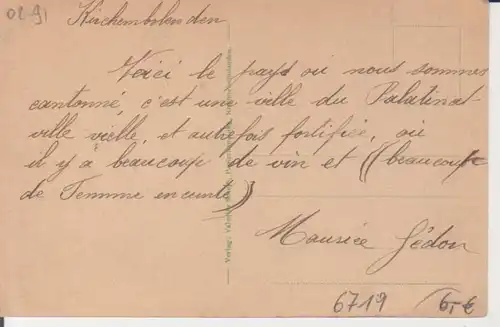 0291
Kirchembolenden
Voici le pays où nous sommes
cantonné, c'est une ville du Palatinat
ville vielle, et autrefois fortifiée, où
il y a beaucoup de vin et ((beaucoup
de Femme enceinte))
Maurice Gédon
Verlag:
6719
6,-€